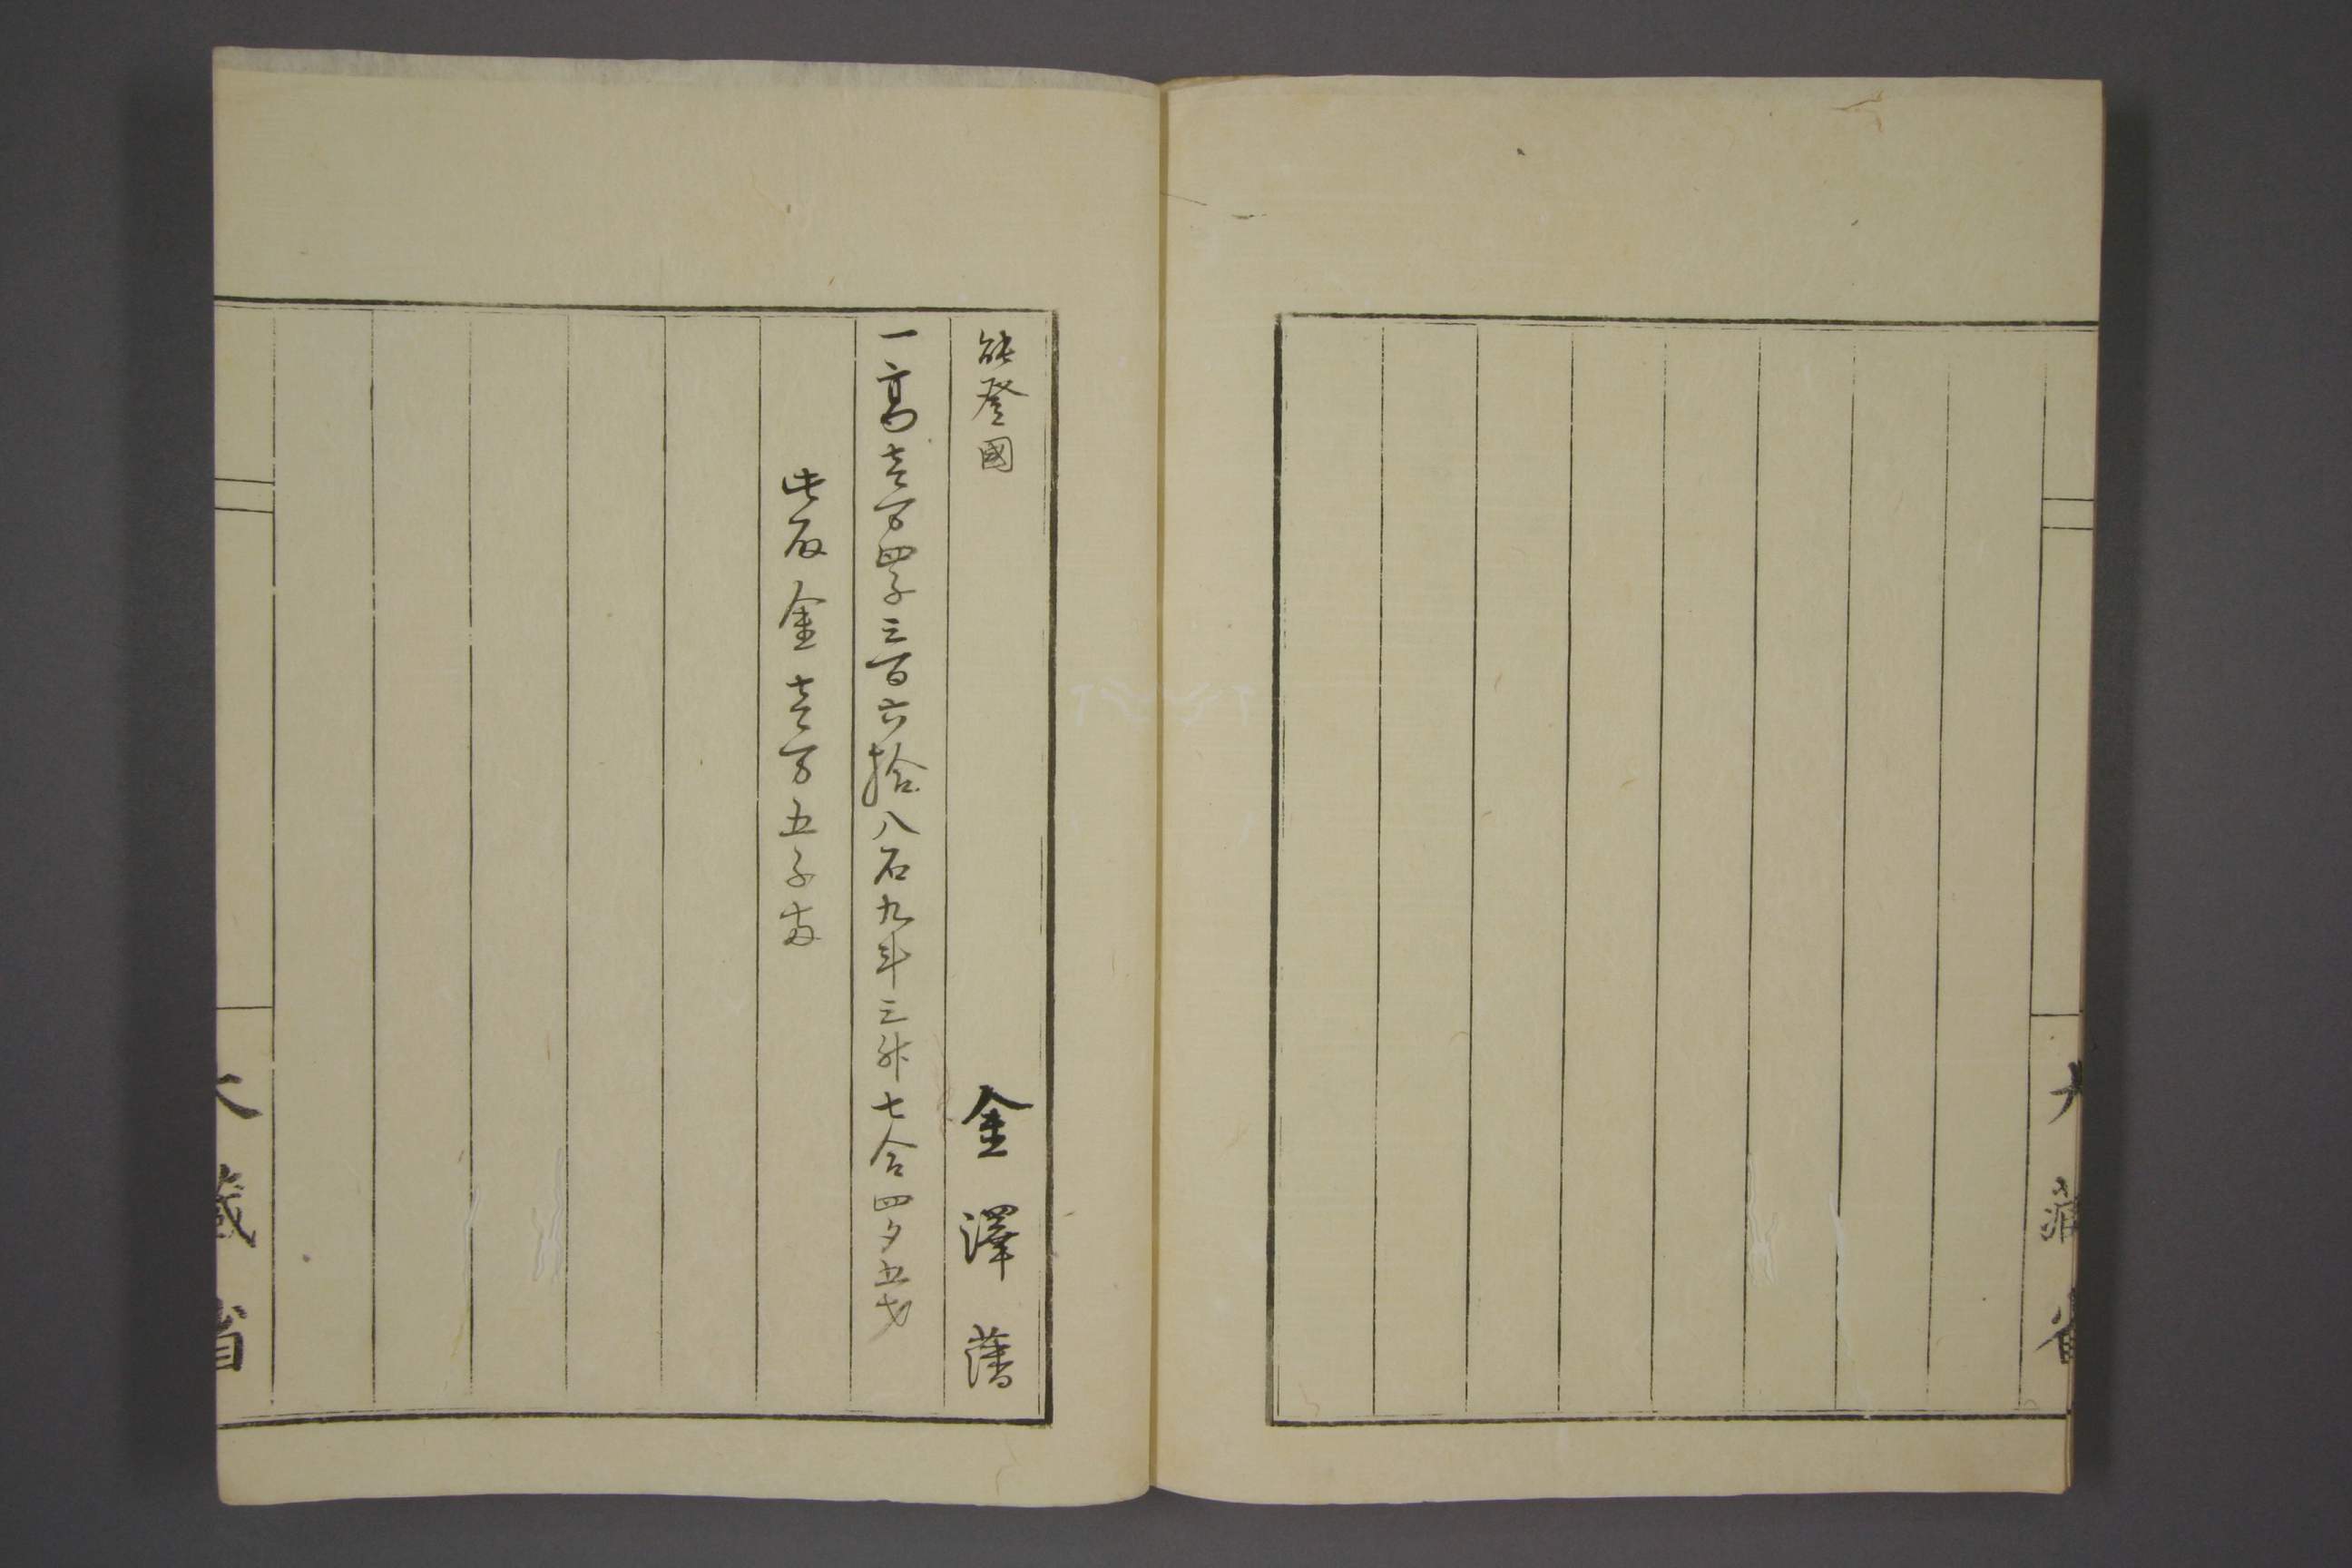 大藏省
能登國
金澤藩
一高壱万四千三百六拾八石九斗三升七合四夕五才
此反金壱万五千両
大藏省